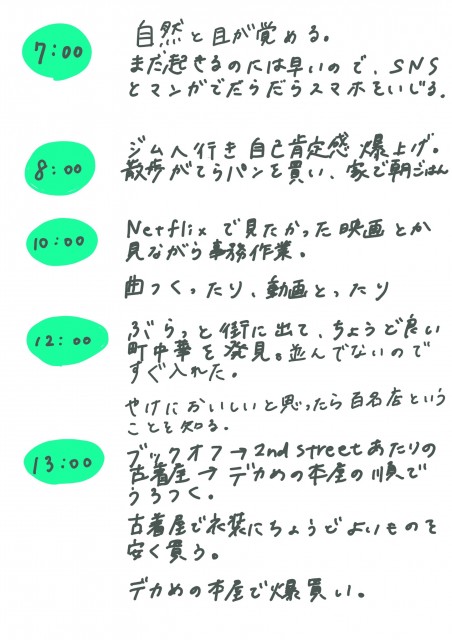 7:00
自然と目が覚める。
まだ起きるのには早いので、SNS
とマンガでだらだらスマホをいじる。
8:00
ジムへ行き 自己肯定感 爆上げ。
散歩がてらパンを買い、家で朝ごはん
10:00
Netflix で見たかった映画とか
見ながら事務作業。
曲つくったり、動画とったり
12:00
ぶらっと街に出て、ちょうど良い
町中華を発見。並んでないので
すぐ入れた。
やけにおいしいと思ったら百名店という
ことを知る。
13:00
ブックオフ→2nd streetあたりの
古着屋→デカめの本屋の順で
うろつく。
古着屋で衣装にちょうどよいものを
安く買う。
デカめの本屋で爆買い。